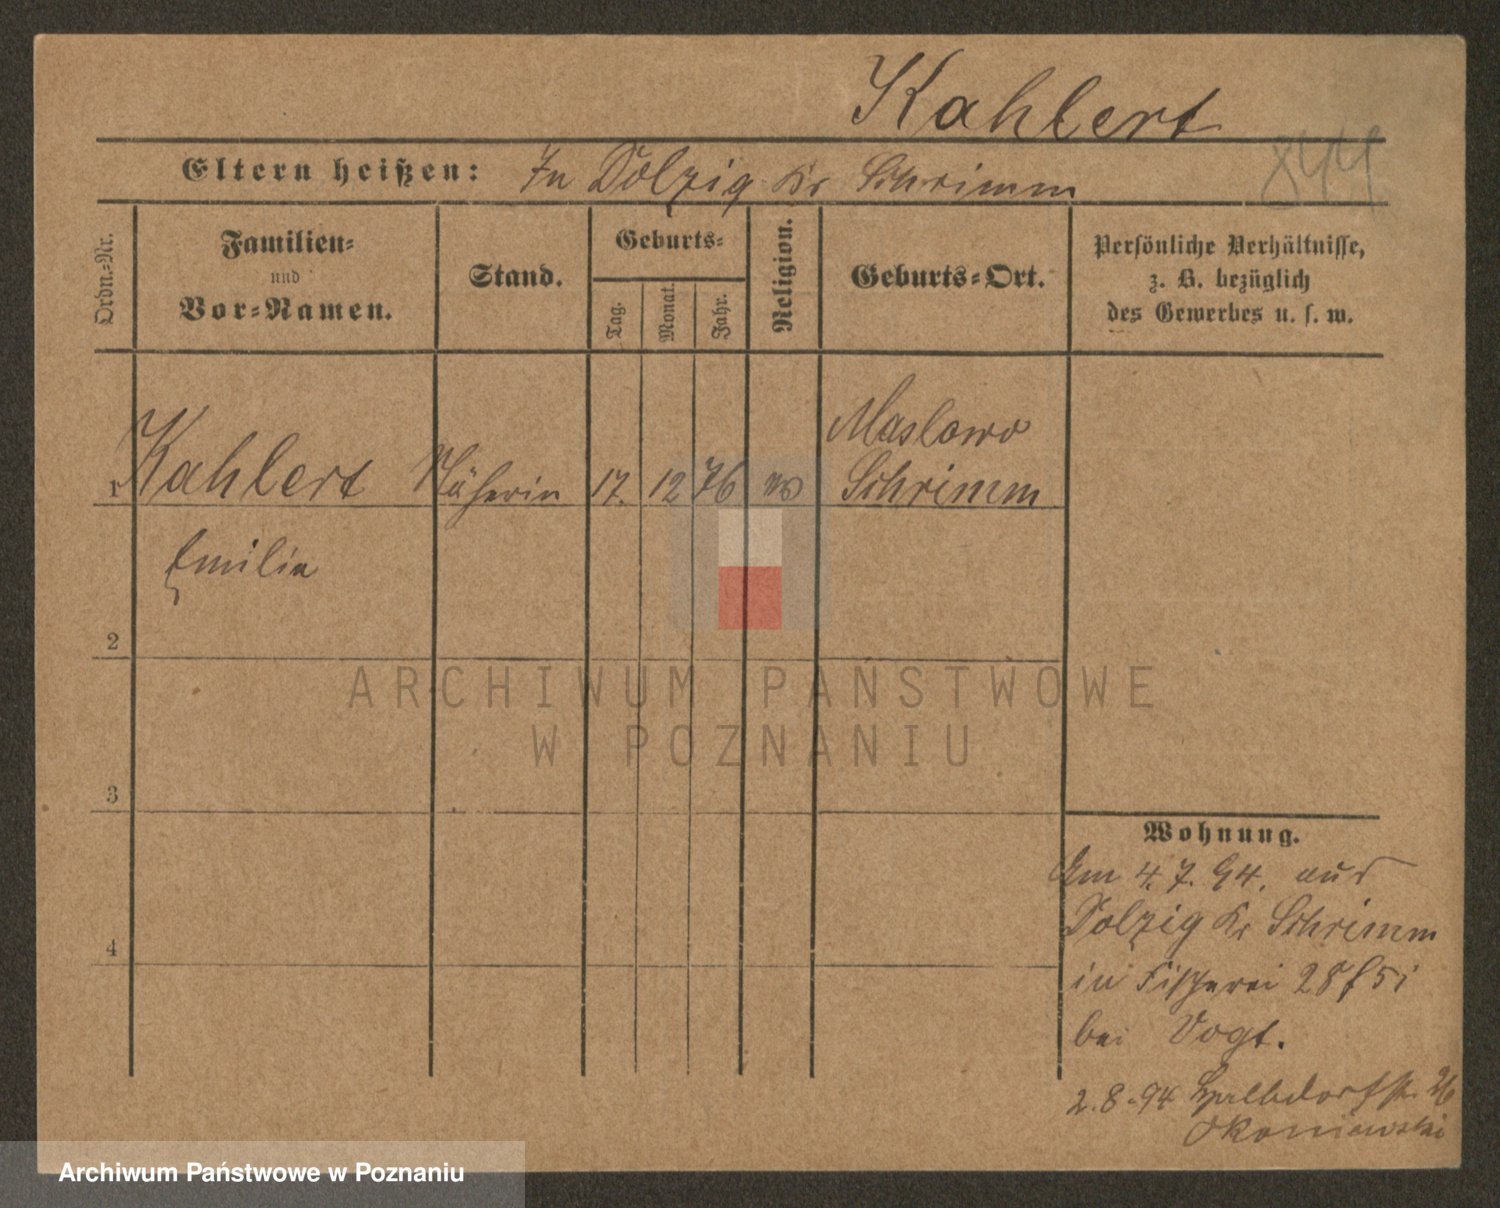 Kahlert
844
Eltern heißen: In Dolzig Kr Schrimm
Ordn.-Nr.
Familien-
und
Vor-Namen.
Stand.
Geburts-
Tag.
Monat.
Jahr.
Religion.
Geburts-Ort.
Persönliche Verhältnisse,
z. B. bezüglich
des Gewerbes u. s. w.
Maslowo
1 Kahlert Näherin 17. 12 76 ev Schrimm
Emilie
2
3
4
ARCHIWUM PAŃSTWOWE
W POZNANIU
Wohnung.
Am 4.7.94. aus
Dolzig Kr Schrimm
in Fischerei 28 f 5 i
bei Vogt.
2.8.94 Halbdorfstr. 26
Okoniewski
Archiwum Państwowe w Poznaniu